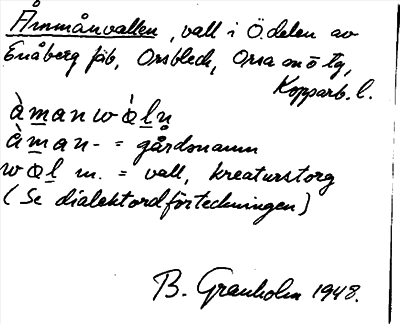 Åmmånvallen, vall i Ö.delen av
Enåberg fäb, Orsbleck, Orsa snö tg,
Kopparb. l.
àmanwàln
àman- = gårdsnamn
wàl m. = vall, kreaturstorg
(Se dialektordförteckningen)
B. Granholm 1948.